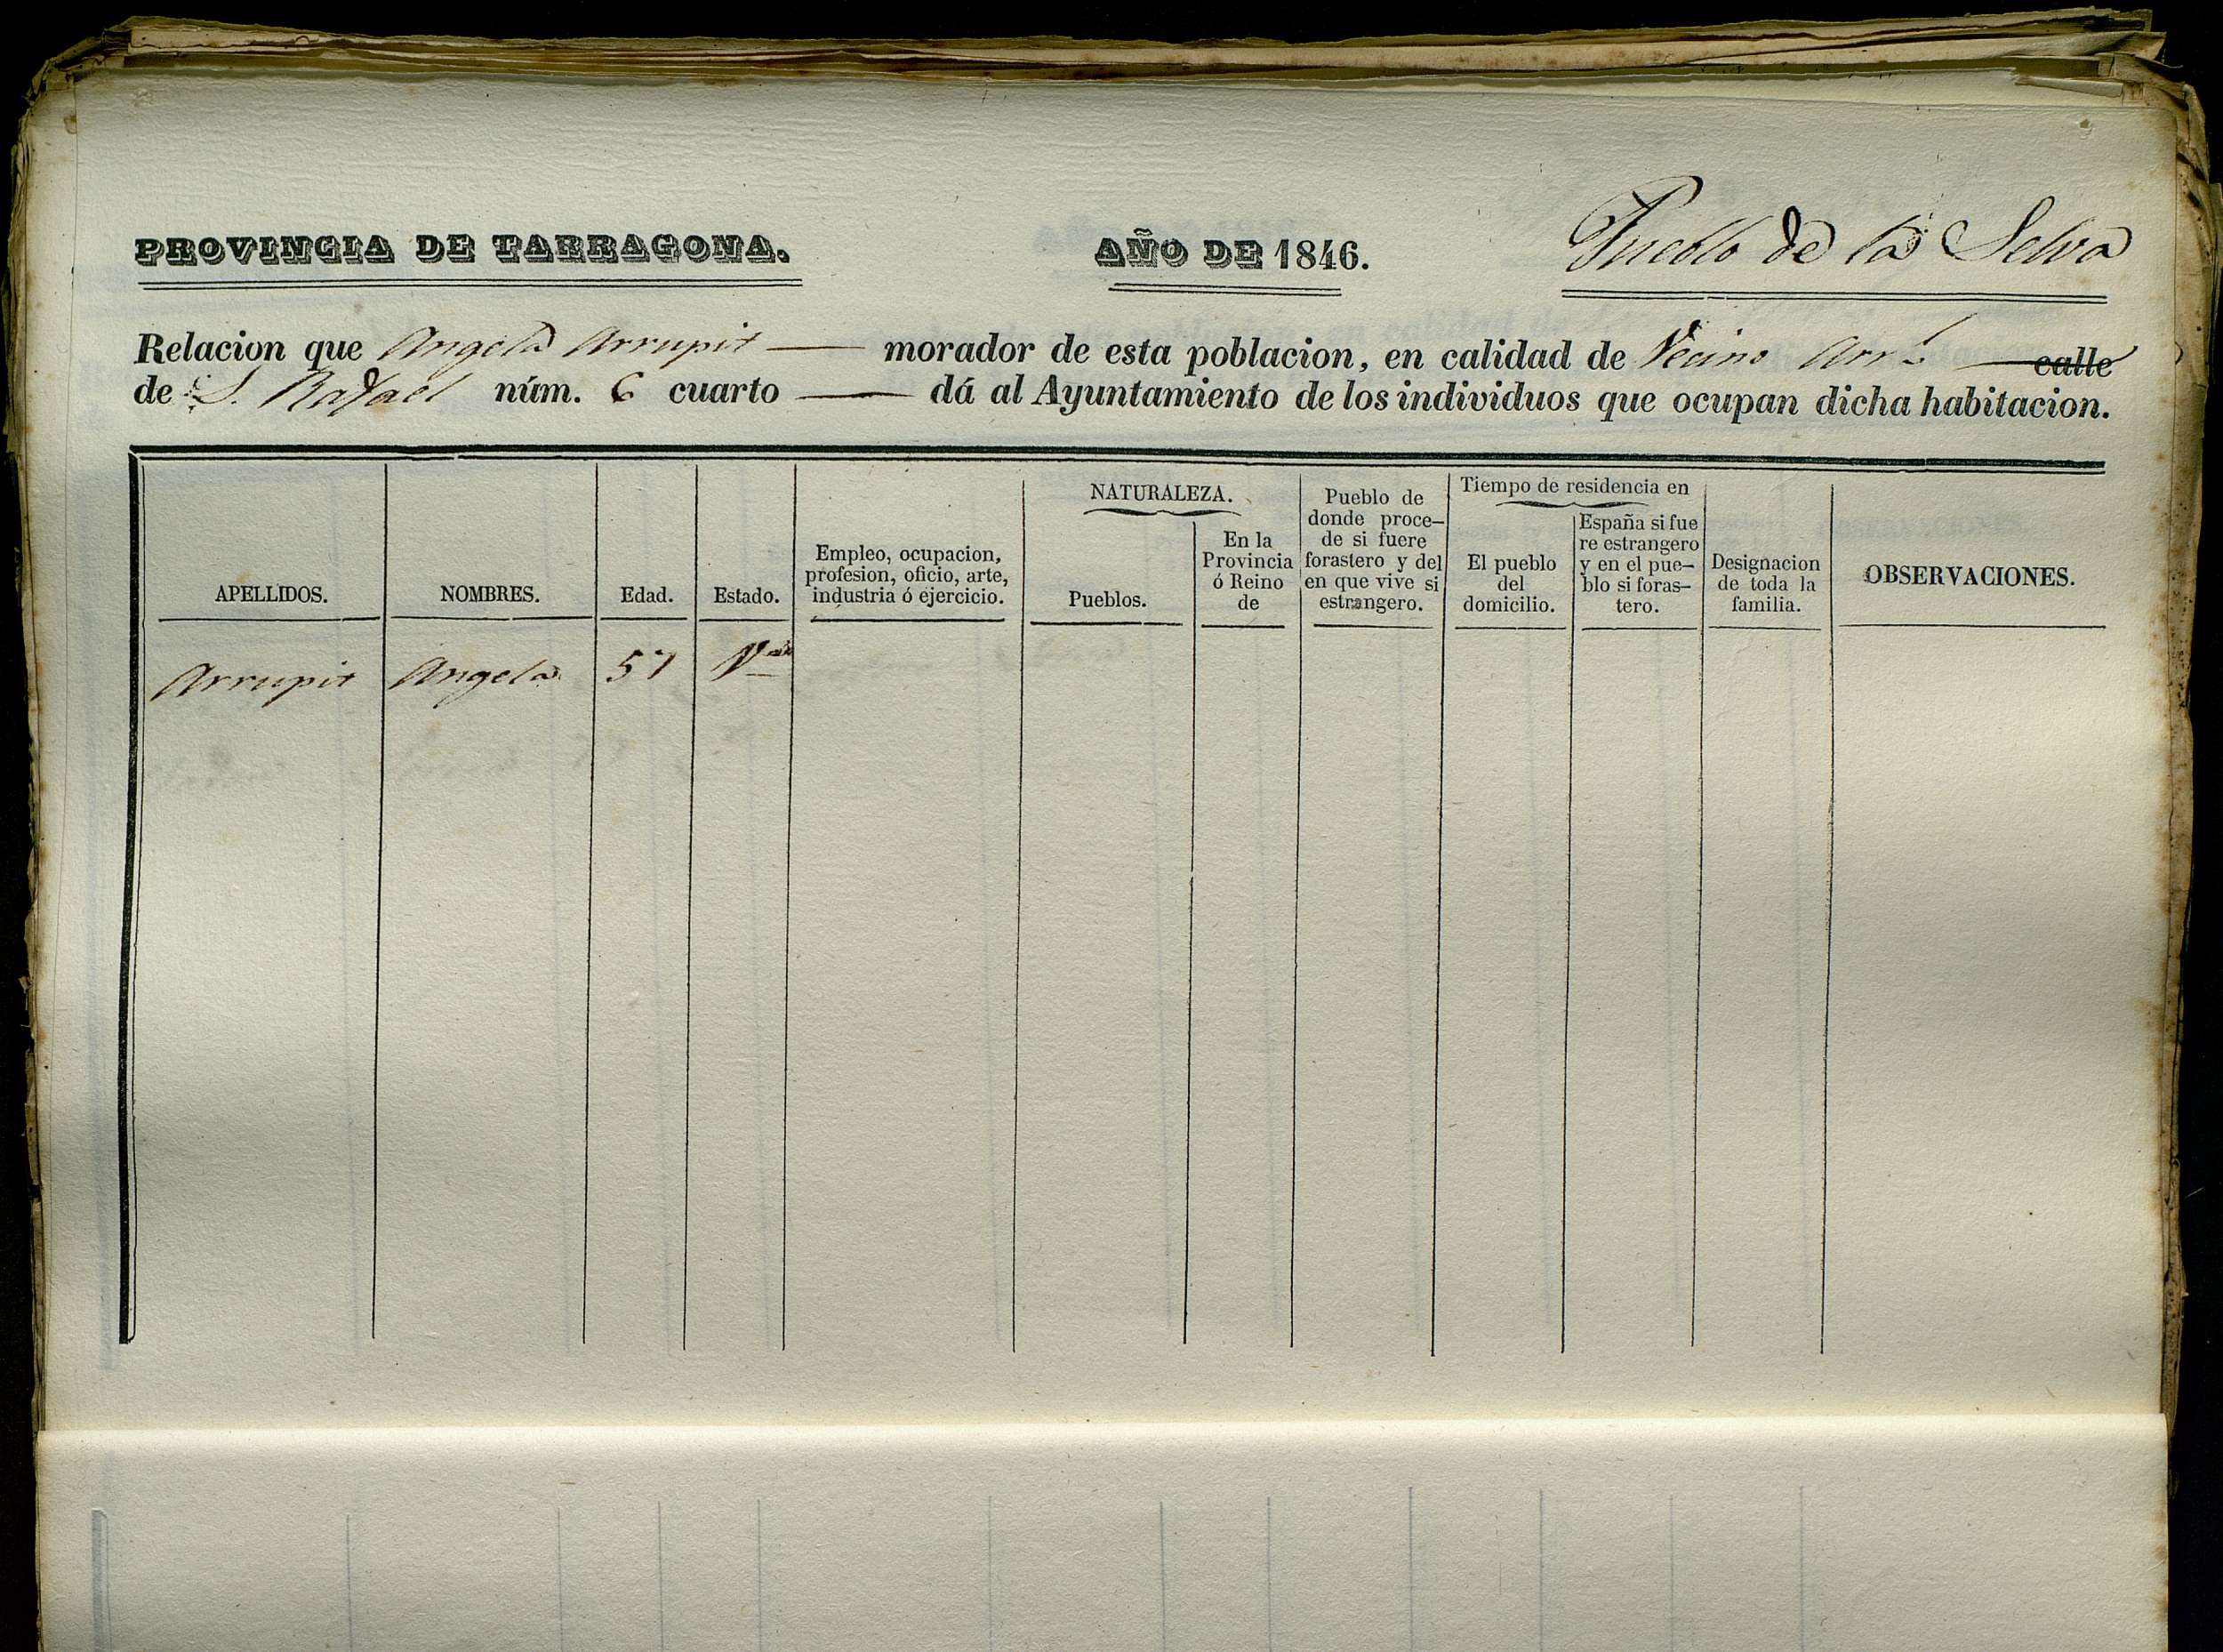 PROVINCIA DE TARRAGONA.
AÑO DE 1846.
Pueblo de la Selva
Relacion que Angela Arrupit morador de esta poblacion, en calidad de Vecino Arr.l calle
de S. Rafael núm. 6 cuarto dá al Ayuntamiento de los individuos que ocupan dicha habitacion.
APELLIDOS.
NOMBRES.
Edad.
Estado.
Empleo, ocupacion,
profesion, oficio, arte,
industria ó ejercicio.
NATURALEZA.
Pueblos.
En la
Provincia
ó Reino
de
Pueblo de
donde proce-
de si fuere
forastero y del
en que vive si
estrangero.
Tiempo de residencia en
El pueblo
del
domicilio.
España si fue
re estrangero
y en el pue-
blo si foras-
tero.
Designacion
de toda la
familia.
OBSERVACIONES.
Arrupit Angela 57 V.da